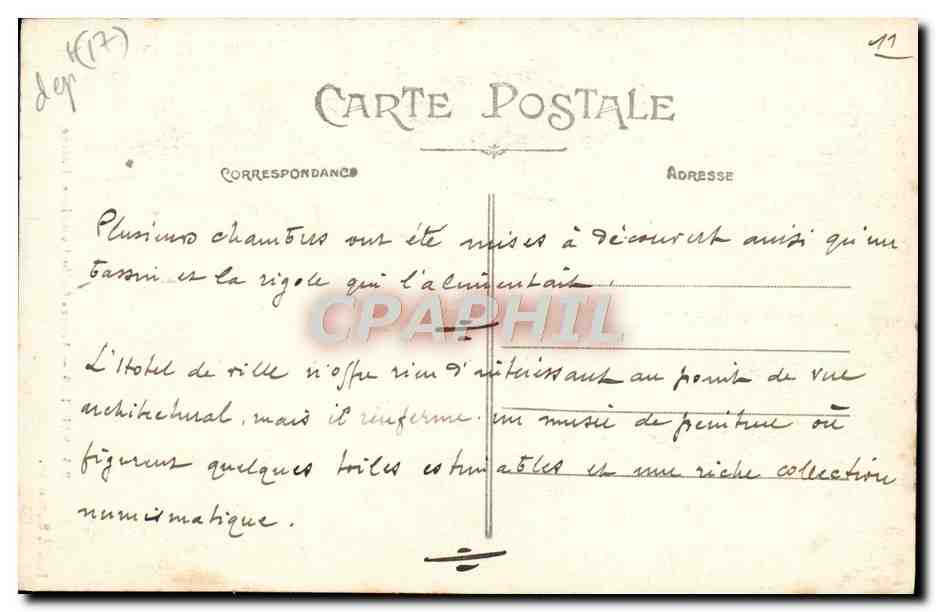 dept (17)
11
CARTE POSTALE
CORRESPONDANCE
ADRESSE
Plusieurs chambres ont été mises à découvert ainsi qu'un
bassin et la rigole qui l'alimentait.
CPAPHIL
L'Hotel de ville n'offre rien d'intéressant au point de vue
architectural, mais il renferme un musée de peinture où
figurent quelques toiles estimables et une riche collection
numismatique.